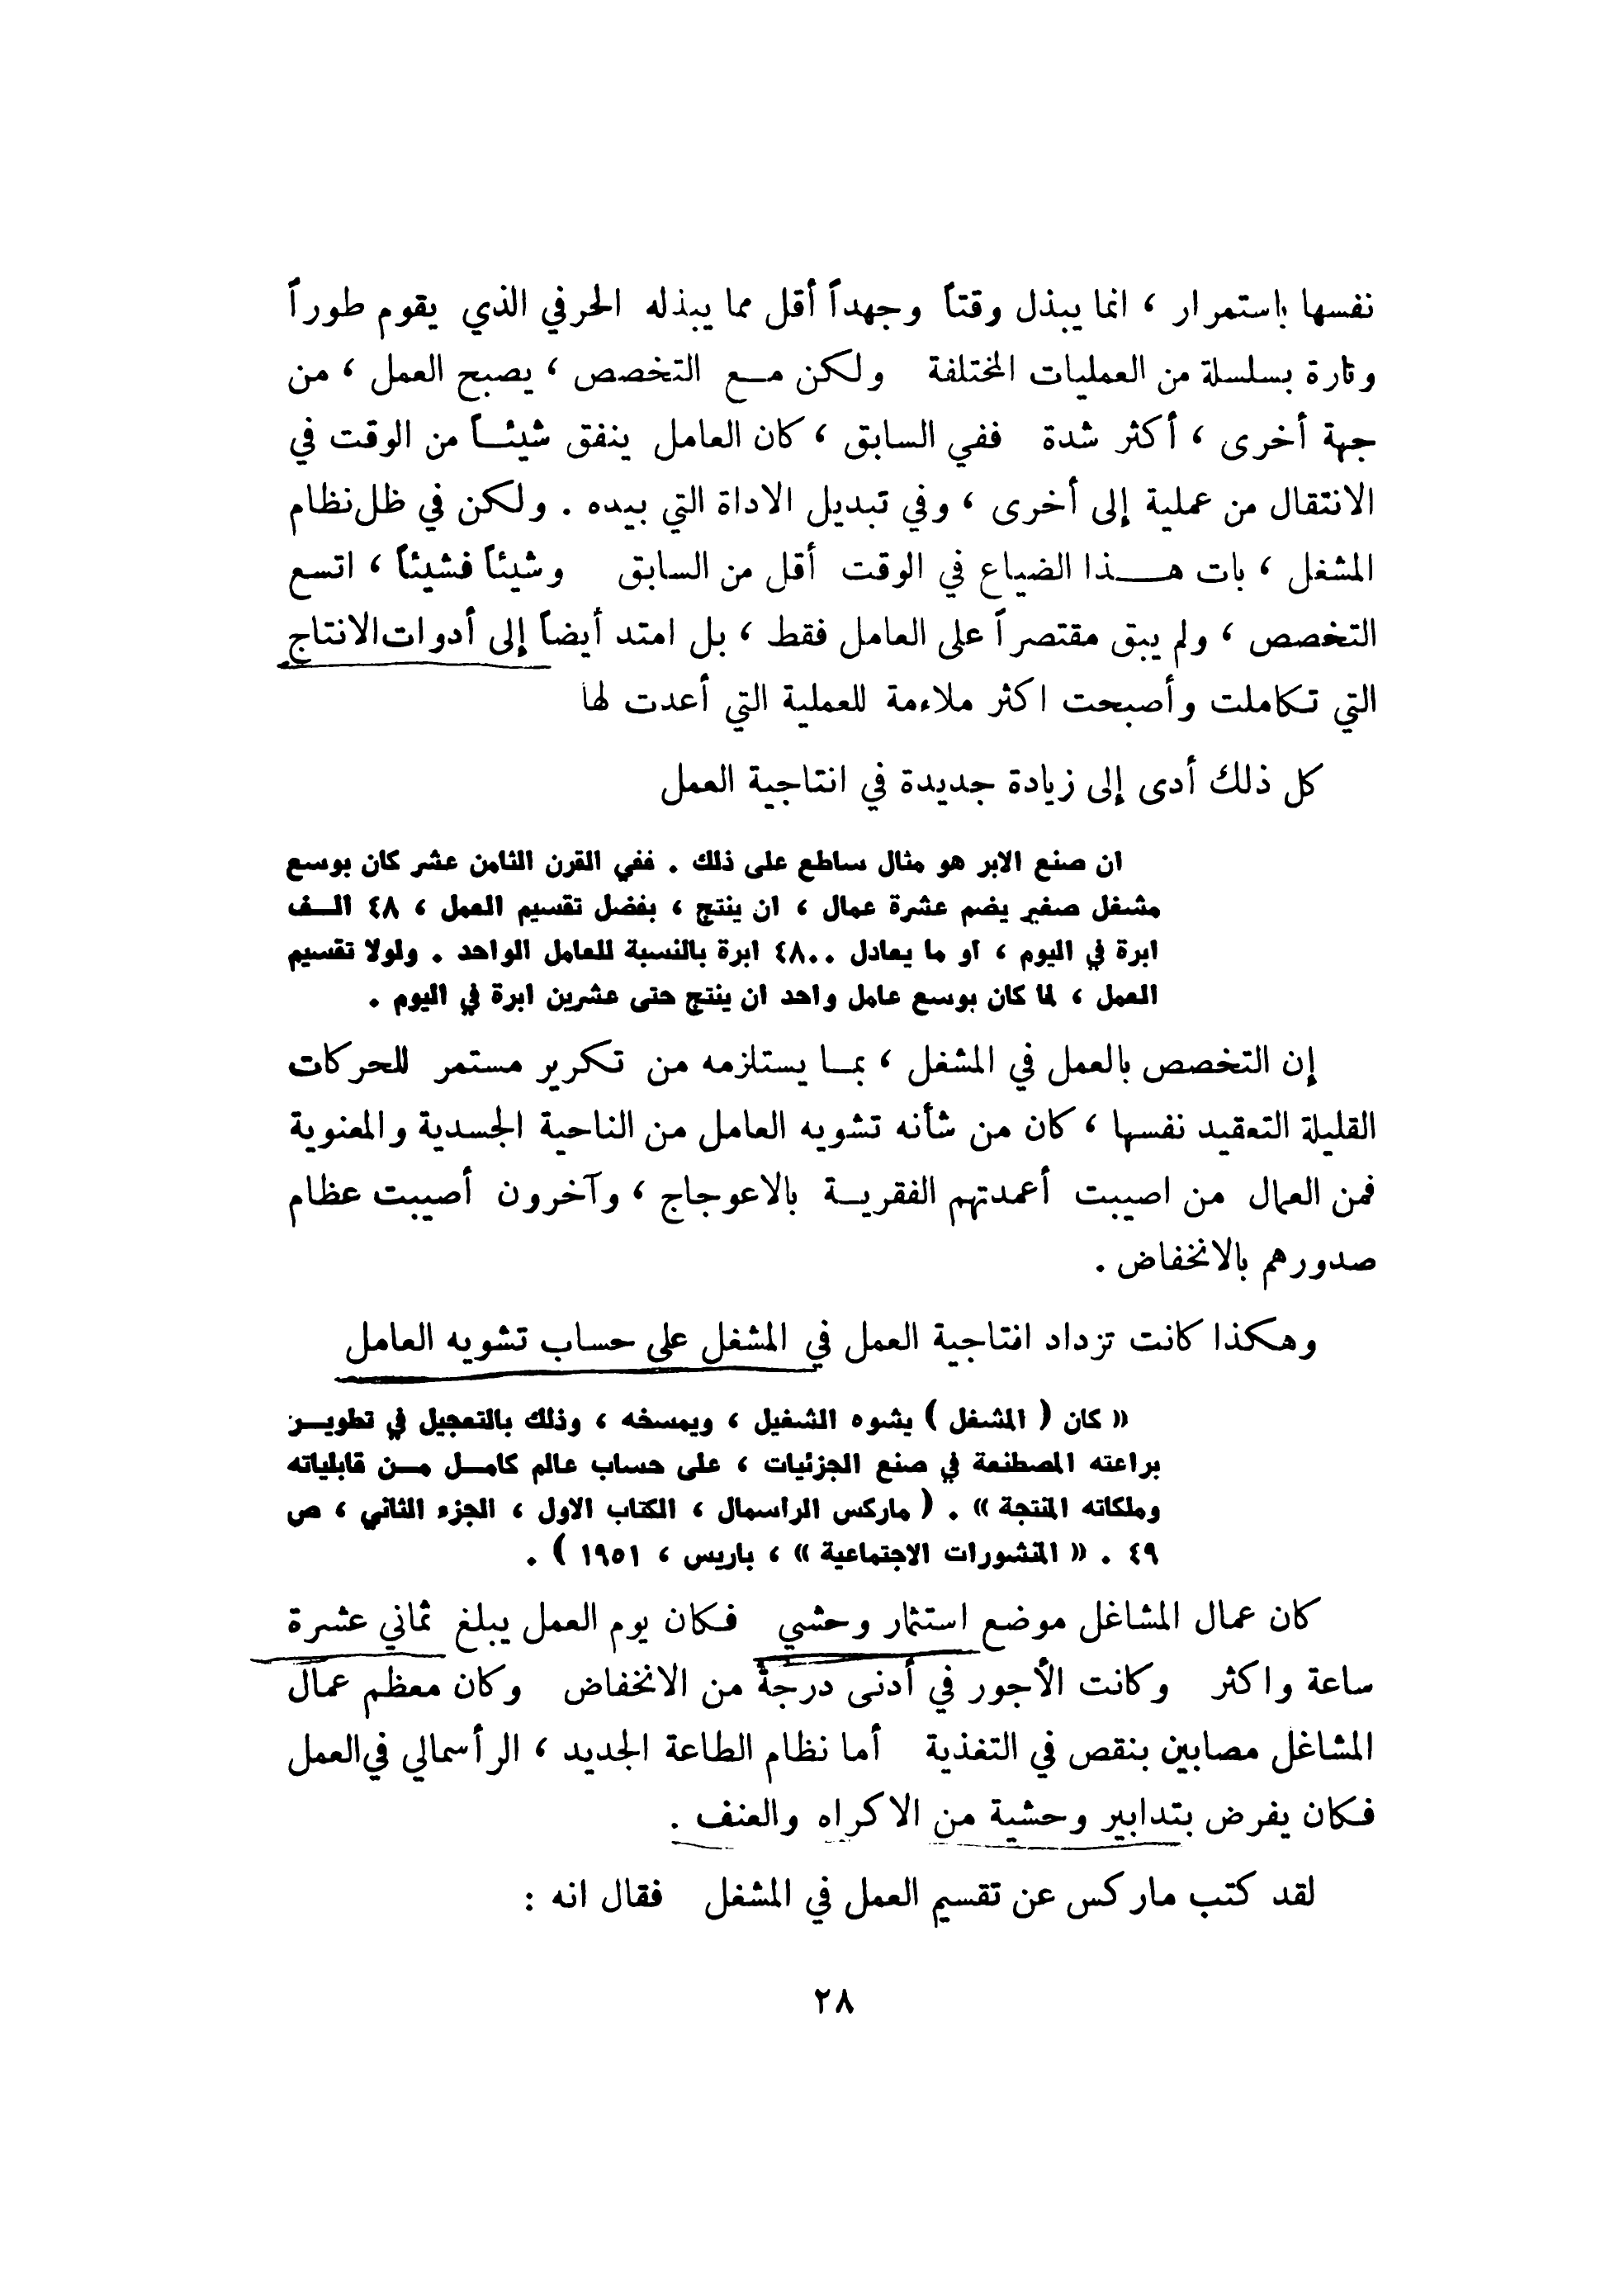 نفسها باستمرار ، انما يبذل وقتاً وجهداً أقل مما يبذله الحرفي الذي يقوم طوراً
وتارة بسلسلة من العمليات المختلفة ولكن مع التخصص ، يصبح العمل ، من
جهة أخرى ، أكثر شدة ففي السابق ، كان العامل ينفق شيئاً من الوقت في
الانتقال من عملية إلى أخرى ، وفي تبديل الاداة التي بيده . ولكن في ظل نظام
المشغل ، بات هذا الضياع في الوقت أقل من السابق وشيئاً فشيئاً ، اتسع
التخصص ، ولم يبق مقتصراً على العامل فقط ، بل امتد أيضاً إلى أدوات الانتاج
التي تكاملت وأصبحت اكثر ملاءمة للعملية التي أعدت لها
كل ذلك أدى إلى زيادة جديدة في انتاجية العمل
ان صنع الابر هو مثال ساطع على ذلك . ففي القرن الثامن عشر كان بوسع
مشغل صغير يضم عشرة عمال ، ان ينتج ، بفضل تقسيم العمل ، ٤٨ الف
ابرة في اليوم ، او ما يعادل ٤٨٠٠ ابرة بالنسبة للعامل الواحد . ولولا تقسيم
العمل ، لما كان بوسع عامل واحد ان ينتج حتى عشرين ابرة في اليوم .
إن التخصص بالعمل في المشغل ، بما يستلزمه من تكرير مستمر للحركات
القليلة التعقيد نفسها ، كان من شأنه تشويه العامل من الناحية الجسدية والمعنوية
فمن العمال من اصيبت أعمدتهم الفقرية بالاعوجاج ، وآخرون أصيبت عظام
صدورهم بالانخفاض .
وهكذا كانت تزداد انتاجية العمل في المشغل على حساب تشويه العامل
« كان ( المشغل ) يشوه الشغيل ، ويمسخه ، وذلك بالتعجيل في تطوير
براعته المصطنعة في صنع الجزئيات ، على حساب عالم كامل من قابلياته
وملكاته المنتجة » . ( ماركس الراسمال ، الكتاب الاول ، الجزء الثاني ، ص
٤٩ . « المنشورات الاجتماعية » ، باريس ، ١٩٥١ ) .
كان عمال المشاغل موضع استثمار وحشي فكان يوم العمل يبلغ ثماني عشرة
ساعة واكثر وكانت الأجور في أدنى درجة من الانخفاض وكان معظم عمال
المشاغل مصابين بنقص في التغذية أما نظام الطاعة الجديد ، الرأسمالي في العمل
فكان يفرض بتدابير وحشية من الاكراه والعنف .
لقد كتب ماركس عن تقسيم العمل في المشغل فقال انه :
٢٨